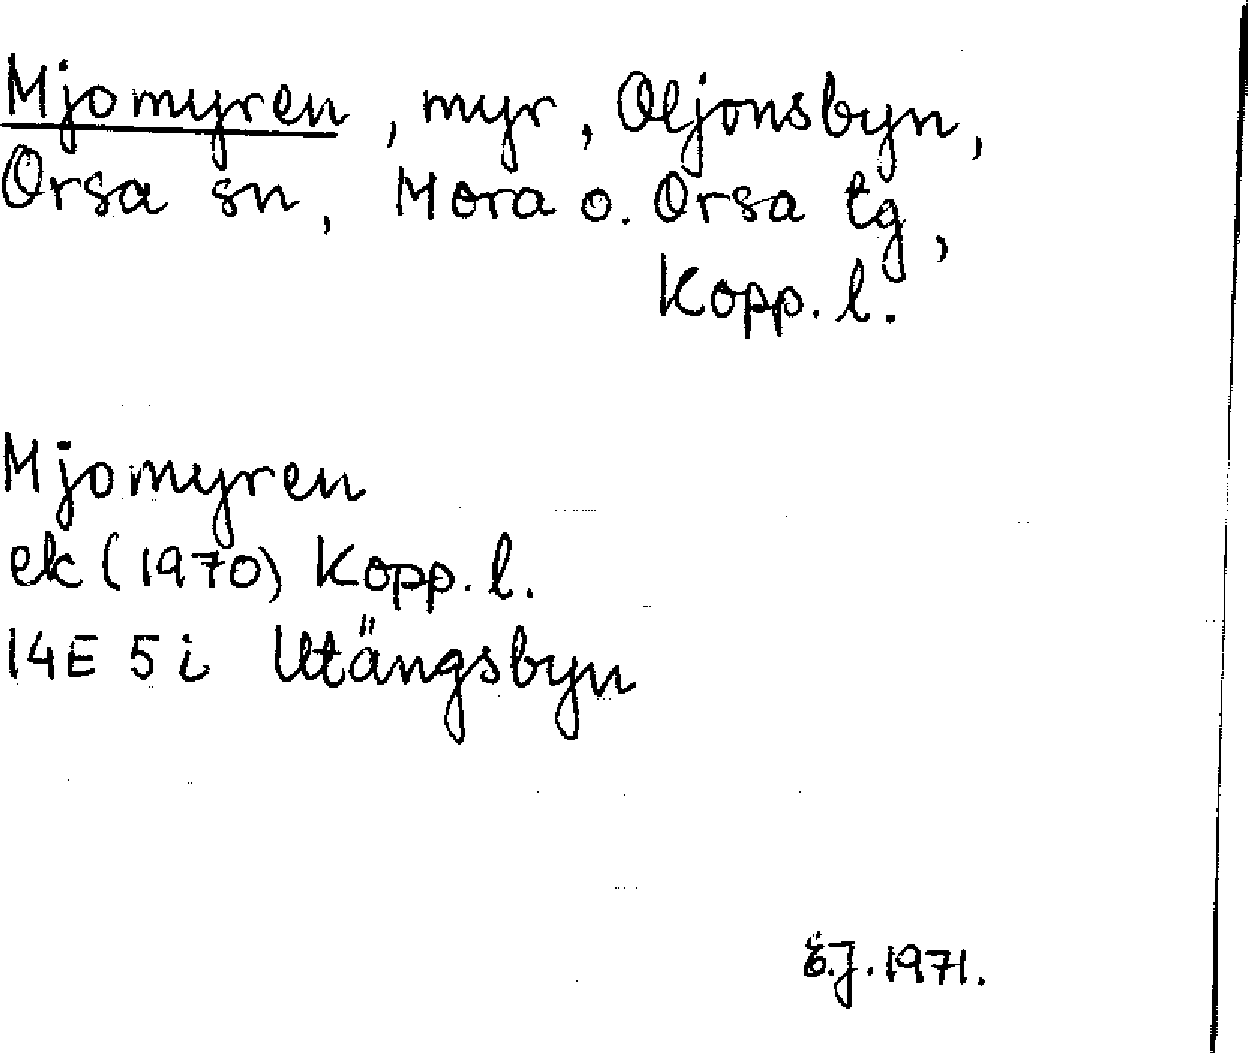 Mjomyren, myr, Oljonsbyn,
Orsa sn, Mora o. Orsa tg,
Kopp. l.
Mjomyren
ek (1970) Kopp. l.
14E 5 i Utängsbyn
Ö.J. 1971.